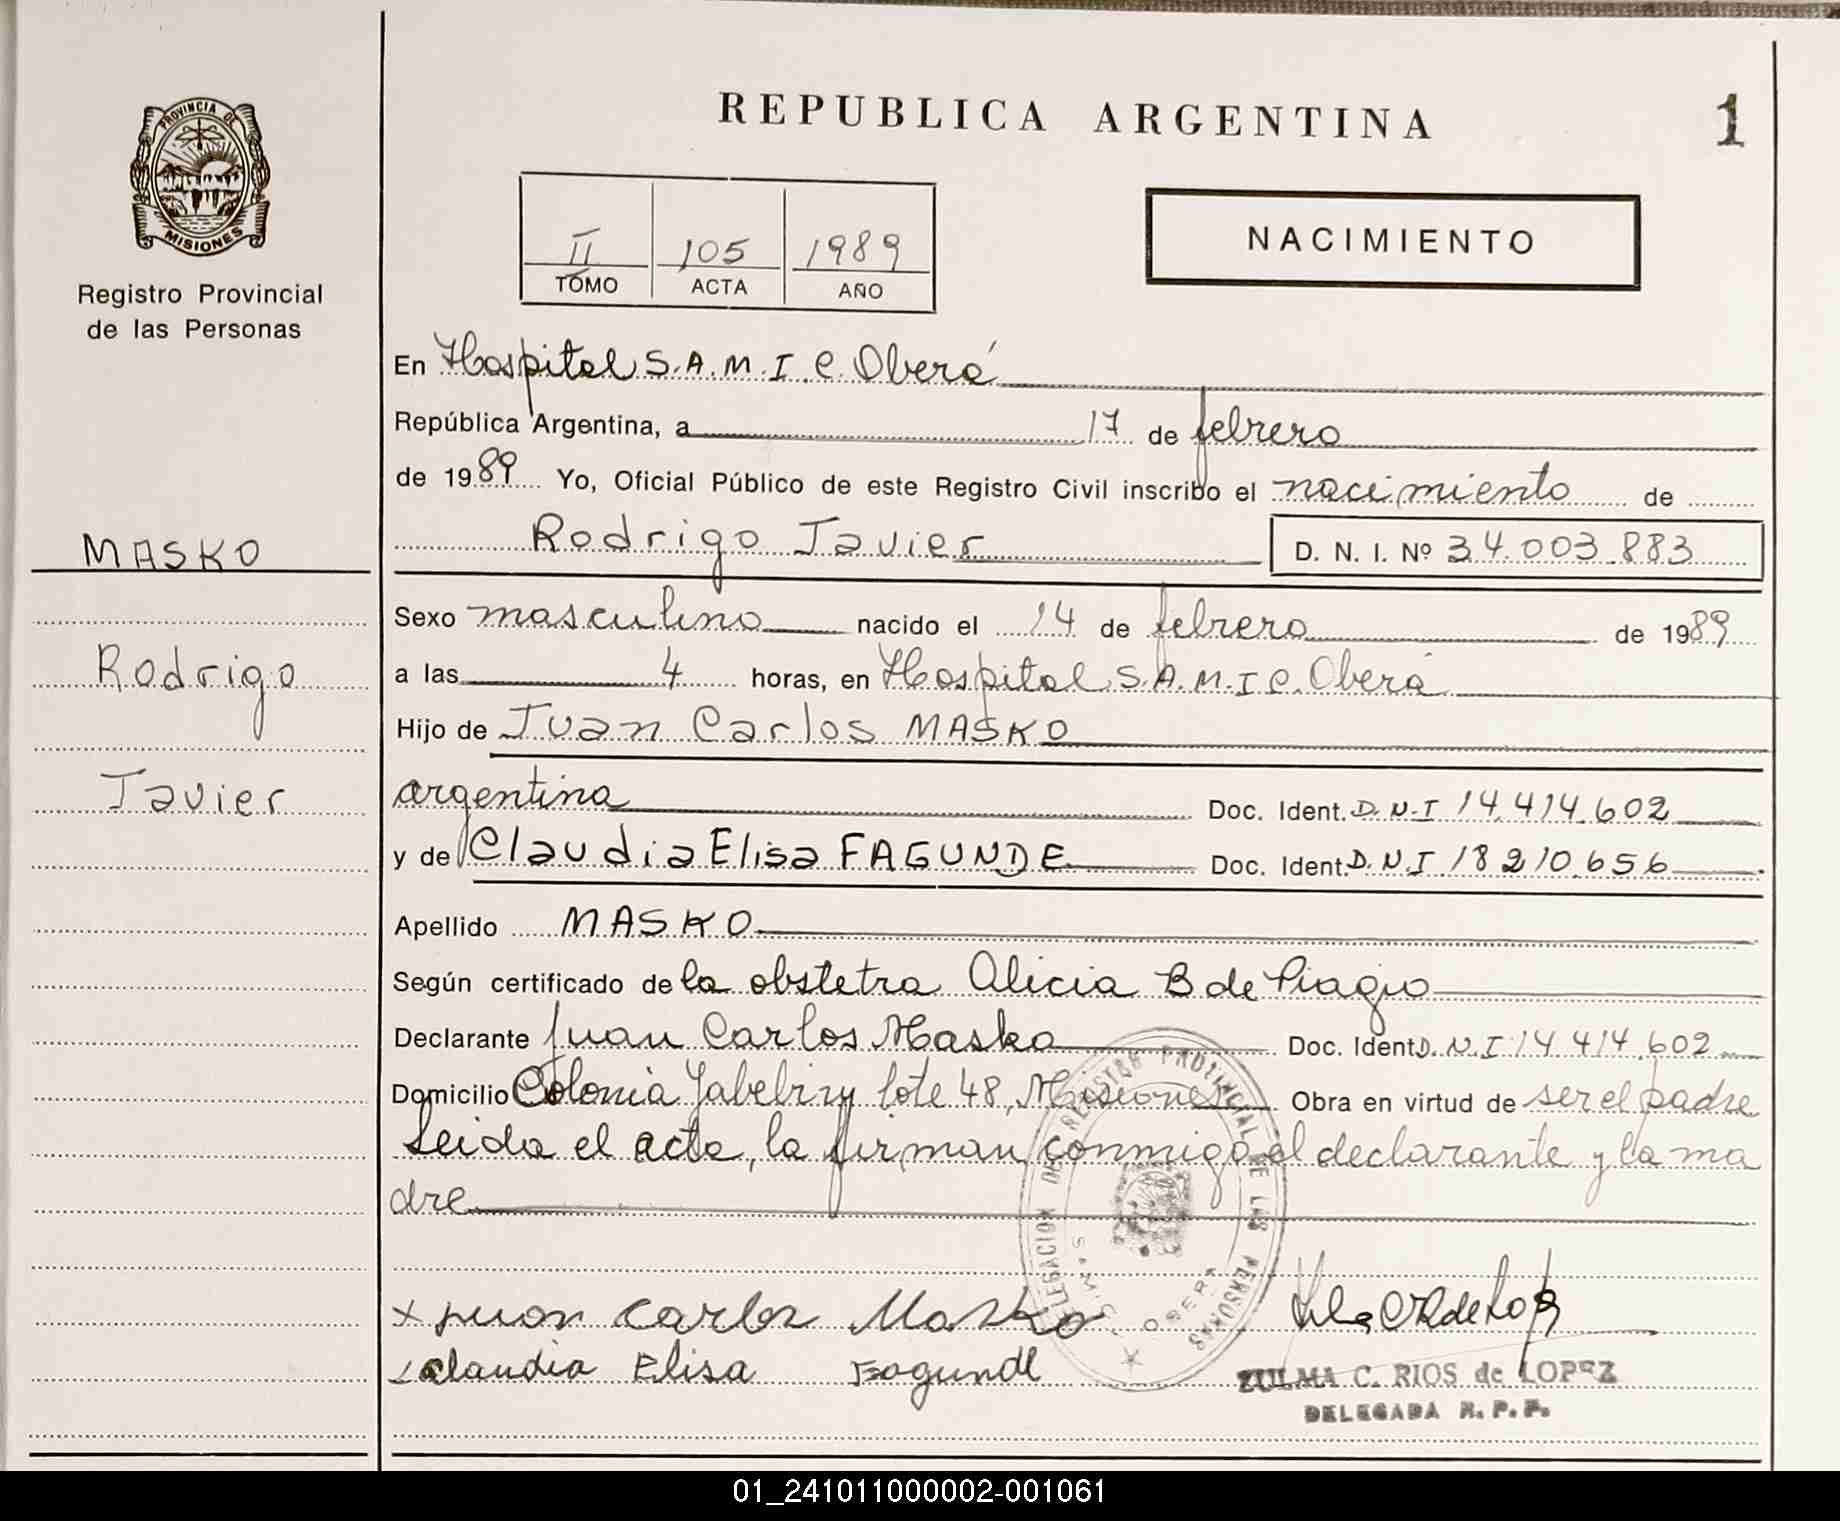 PROVINCIA DE
MISIONES
Registro Provincial
de las Personas
MASKO
Rodrigo
Javier
REPUBLICA ARGENTINA
1
II 105 1989
TOMO ACTA AÑO
NACIMIENTO
En Hospital S.A.M.I.C. Oberá
República Argentina, a 17 de febrero
de 1989 Yo, Oficial Público de este Registro Civil inscribo el nacimiento de
Rodrigo Javier D. N. I. Nº 34.003.883
Sexo masculino nacido el 14 de febrero de 1989
a las 4 horas, en Hospital S.A.M.I.C. Oberá
Hijo de Juan Carlos MASKO
argentina Doc. Ident. D.N.I 14.414.602
y de Claudia Elisa FAGUNDE Doc. Ident. D.N.I 18210.656
Apellido MASKO
Según certificado de la obstetra Alicia B de Piagio
Declarante Juan Carlos Masko Doc. Ident D.N.I 14 414.602
Domicilio Colonia Yabebiry lote 48, Misiones Obra en virtud de ser el padre
Leida el acta, la firman conmigo el declarante y la ma
dre
DELEGACION DEL REGISTRO PROVINCIAL DE LAS PERSONAS
S.A.M.I.C. OBERA
x Juan Carlos Masko
Claudia Elisa Fagunde
ZULMA C. RIOS de LOPEZ
DELEGADA R. P. P.
01_241011000002-001061